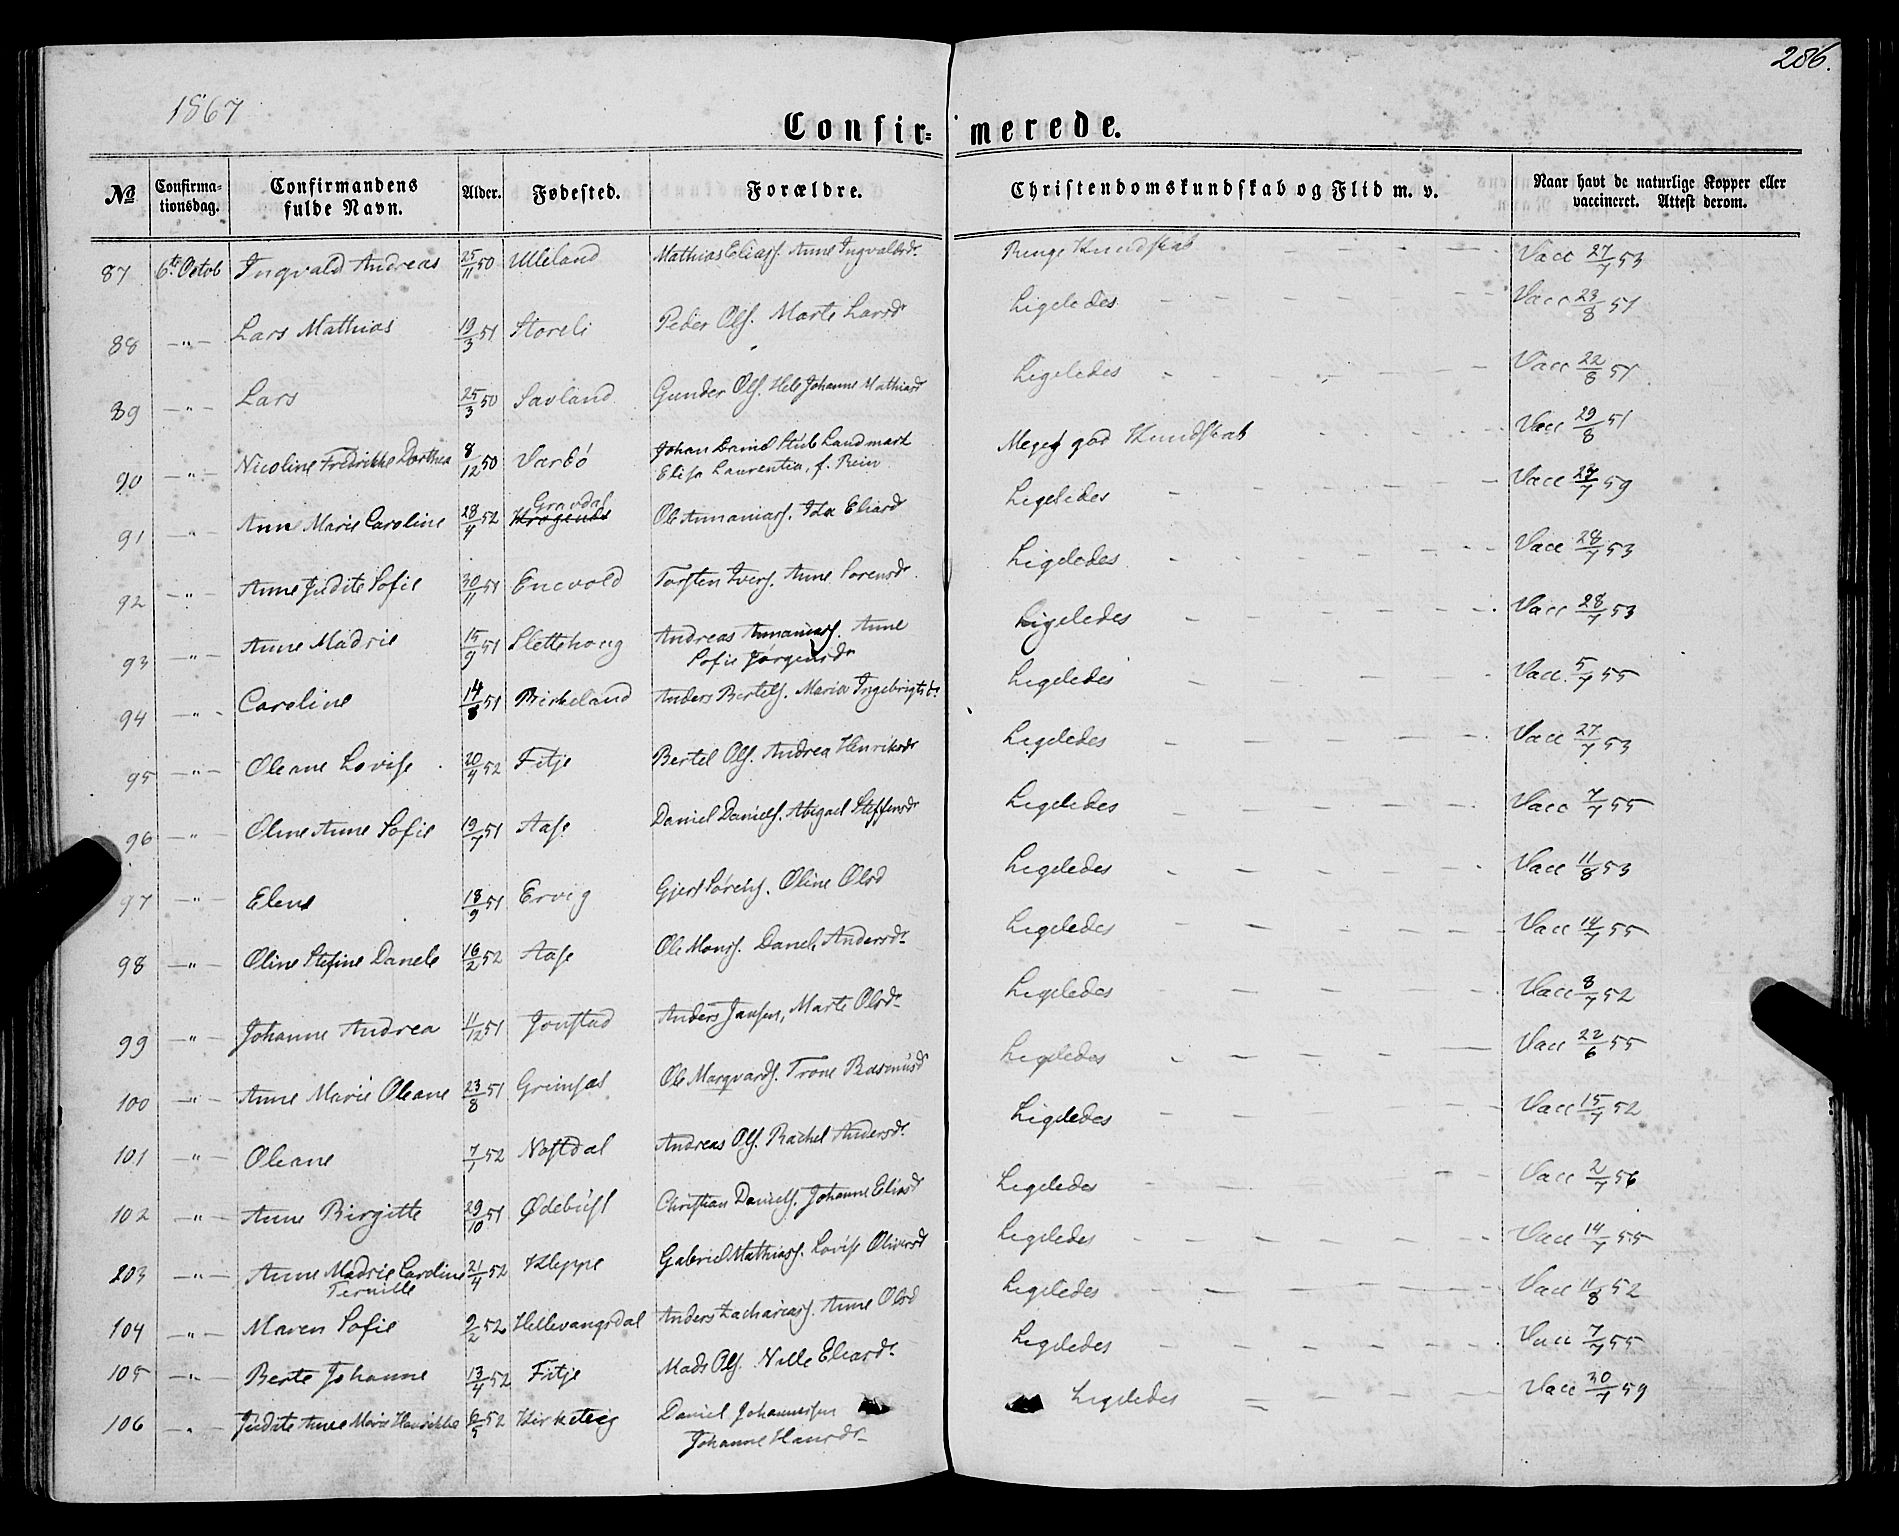 286.
1867
Confirmerede.
№ Confirmationsdag. Confirmandens fulde Navn. Alder. Fødested. Forældre. Christendomskundskab og Flid m. v. Naar havt de naturlige Kopper eller vaccineret. Attest derom.
87 6te Octob Ingvald Andreas 25/11 50 Ulleland Mathias Eliass. Anne Ingvaldsdr. Ringe Kundskab Vacc 27/7 53
88 –"– Lars Mathias 19/3 51 Storeli Peder Ols. Marte Larsd Ligeledes Vacc 23/8 51
89 –"– Lars 25/3 50 Savland Gunder Ols. Hele Johanne Mathiasd Ligeledes Vacc 22/8 51
90 –"– Nicoline Fredrikke Dorthea 8/12 50 Vardø Johan Daniel Stub Landmark Elisa Laurentia, f. Rein Meget god Kundskab Vacc 29/8 51
91 –"– Ann Marie Caroline 28/4 52 Gravdal Ole Annanias. Ida Eliasd Ligeledes Vacc 27/7 59
92 –"– Anne Judite Sofie 30/11 51 Enevold Torsten Ivers. Anne Sorensdr Ligeledes Vacc 28/7 53
93 –"– Anne Madrie 15/9 51 Slettehoug Andreas Annanias. Anne Sofie Jørgensdr Ligeledes Vacc 28/7 53
94 –"– Caroline 14/8 51 Birkeland Anders Bertels. Maria Ingebrigtsdr Ligeledes Vacc. 5/7 55
95 –"– Oleane Lovise 20/4 52 Fitje Bertel Ols. Andrea Henriksdr Ligeledes Vacc 27/7 53
96 –"– Oline Anne Sofie 19/7 51 Aase Daniel Daniels. Abigael Steffensdr Ligeledes Vacc 7/7 55
97 –"– Elene 18/9 51 Ervig Gjert Sørens. Oline Olsd Ligeledes Vacc 11/8 53
98 –"– Oline Stefine Danele 16/2 52 Aase Ole Monss. Danele Andersdr Ligeledes Vacc 14/7 55
99 –"– Johanne Andrea 11/12 51 Jonstad Anders Jansen, Marte Olsdr Ligeledes Vacc 8/7 52
100 –"– Anne Marie Oleane 23/8 51 Grimsæs Ole Marqvards. Trone Rasmusd Ligeledes Vacc 22/6 55
101 –"– Oleane 7/1 52 Nostdal Andreas Ols. Rachel Andersdr Ligeledes Vacc 15/7 52
102 –"– Anne Birgitte 29/10 51 Ødebust Christian Daniels. Johanne Eliasd Ligeledes Vacc 2/7 56
203 –"– Anne Madrie Caroline Pernille 21/4 52 Kleppe Gabriel Mathias. Lovise Oliversd Ligeledes Vacc 14/7 55
104 –"– Maren Sofie 9/2 52 Hellevangsdal Anders Zacharias. Anne Olsd Ligeledes Vacc 11/8 52
105 –"– Berte Johanne 13/4 52 Fitje Mads Ols. Nille Eliasdr Ligeledes Vacc 7/7 55
106 –"– Judite Anne Marie Henrikke 6/5 52 Kirketeig Daniel Johannesen Johanne Hansdr Ligeledes Vacc 30/7 59